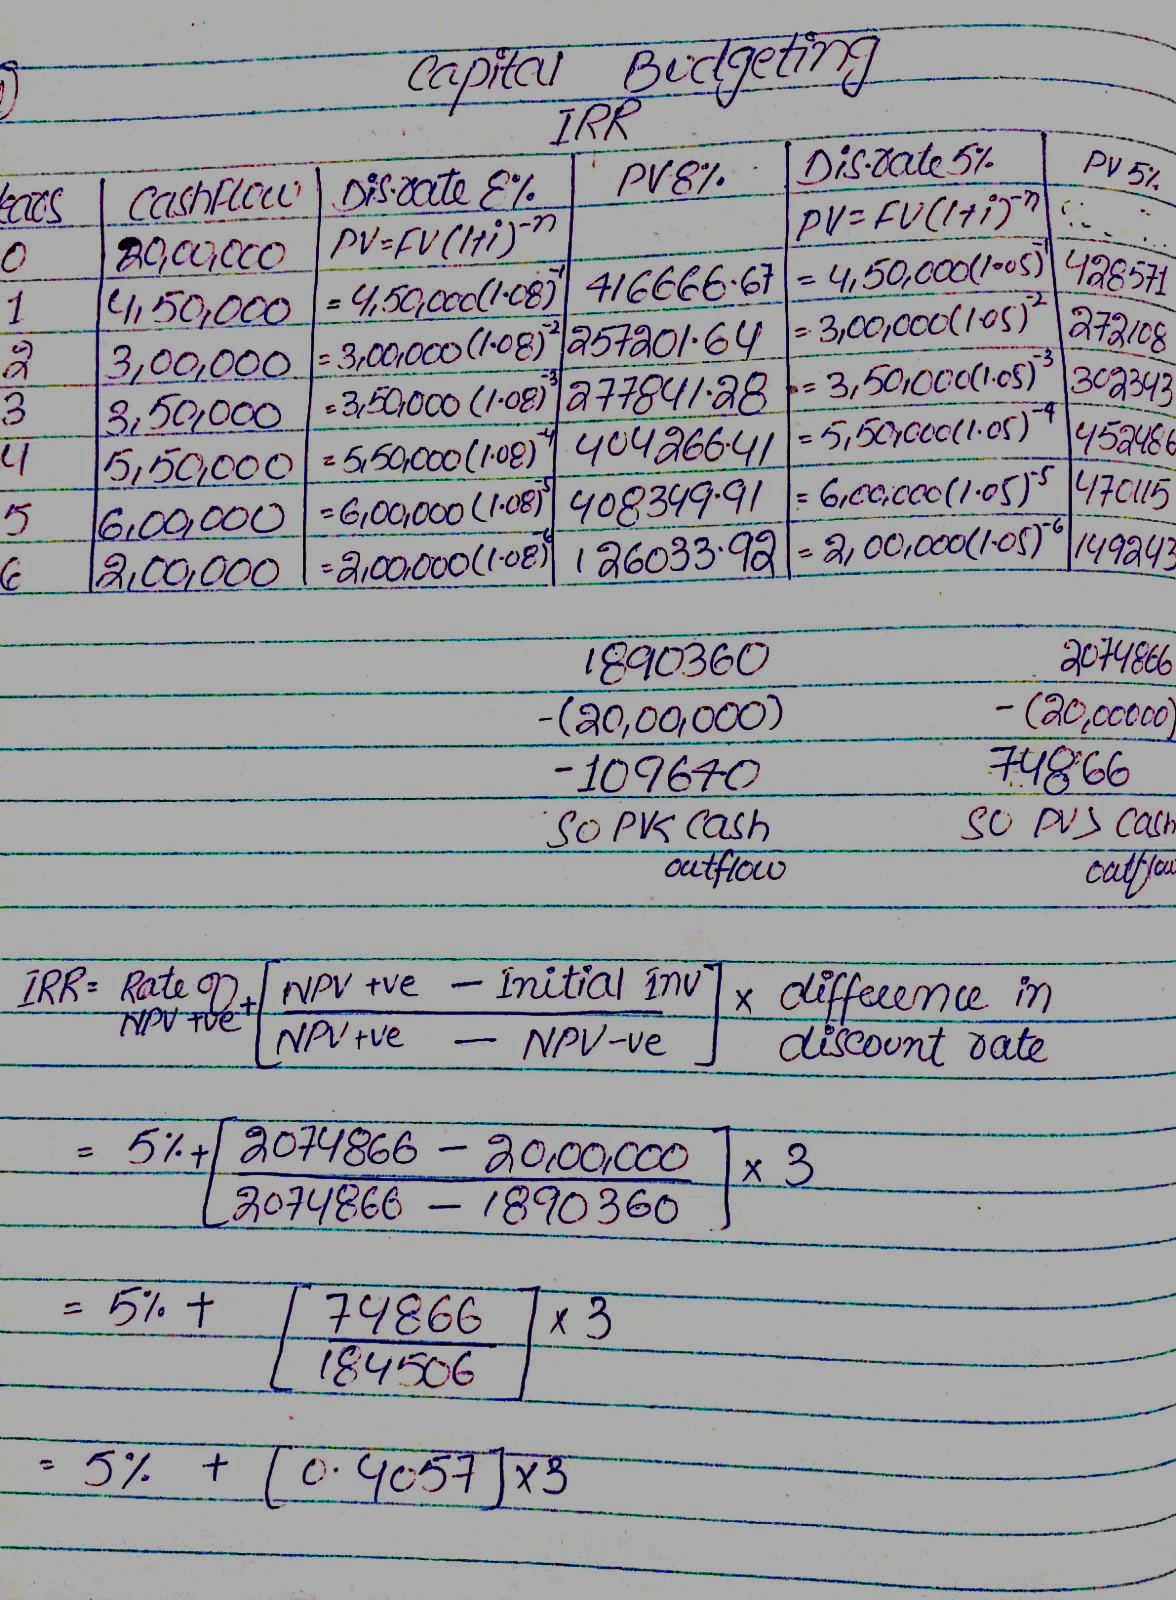 Capital Budgeting
IRR
Years CashFlow Dis.rate 8% PV 8% Dis.rate 5% PV 5%
0 20,00,000 PV=FV(1+i)⁻ⁿ PV=FV(1+i)⁻ⁿ
1 4,50,000 =4,50,000(1.08)⁻¹ 416666.67 =4,50,000(1.05)⁻¹ 428571
2 3,00,000 =3,00,000(1.08)⁻² 257201.64 =3,00,000(1.05)⁻² 272108
3 3,50,000 =3,50,000(1.08)⁻³ 277841.28 =3,50,000(1.05)⁻³ 302343
4 5,50,000 =5,50,000(1.08)⁻⁴ 404266.41 =5,50,000(1.05)⁻⁴ 452486
5 6,00,000 =6,00,000(1.08)⁻⁵ 408349.91 =6,00,000(1.05)⁻⁵ 470115
6 2,00,000 =2,00,000(1.08)⁻⁶ 126033.92 =2,00,000(1.05)⁻⁶ 149243
1890360 2074866
-(20,00,000) -(20,00000)
-109640 74866
SO PV< Cash SO PV> Cash
outflow outflow
IRR= Rate of NPV +ve + [NPV +ve - Initial Inv / NPV +ve - NPV -ve] × difference in discount rate
= 5% + [2074866 - 20,00,000 / 2074866 - 1890360] × 3
= 5% + [74866 / 184506] × 3
= 5% + [0.4057] × 3